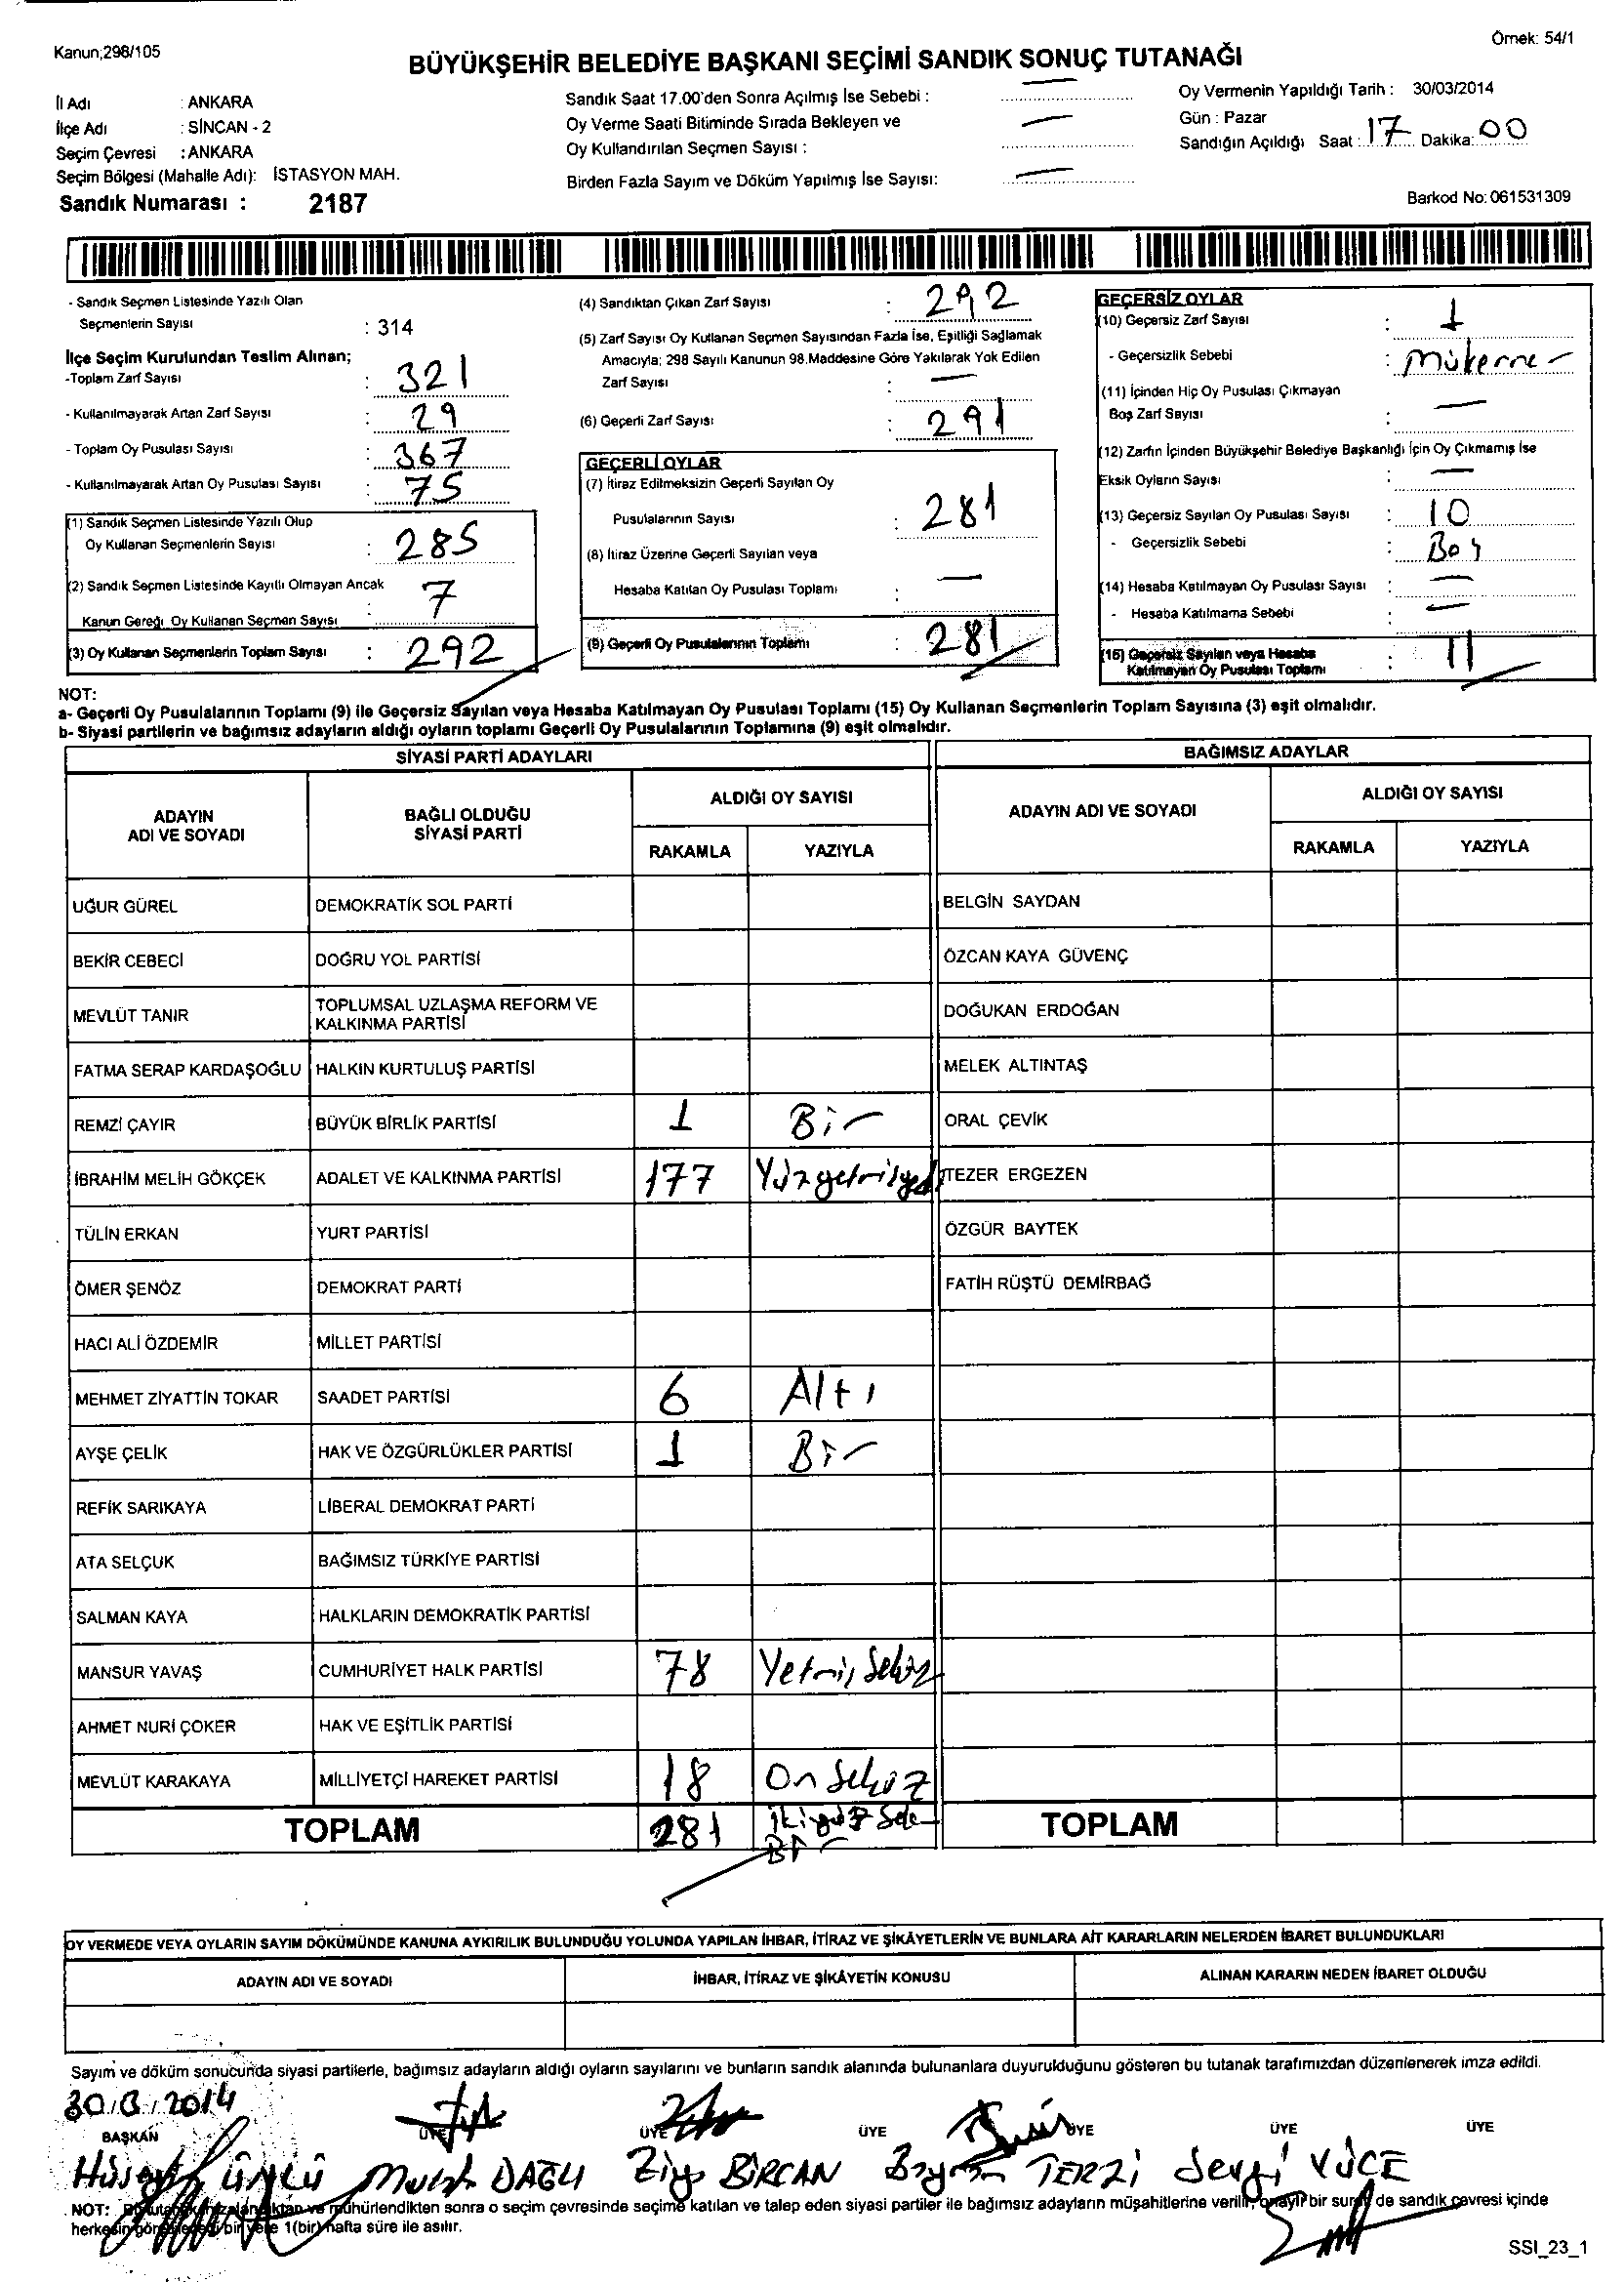 Kanun;298/105
Örnek: 54/1
BÜYÜKŞEHİR BELEDİYE BAŞKANI SEÇİMİ SANDIK SONUÇ TUTANAĞI
İl Adı : ANKARA
İlçe Adı : SİNCAN - 2
Seçim Çevresi : ANKARA
Seçim Bölgesi (Mahalle Adı): İSTASYON MAH.
Sandık Numarası : 2187
Sandık Saat 17.00'den Sonra Açılmış İse Sebebi : —
Oy Verme Saati Bitiminde Sırada Bekleyen ve
Oy Kullandırılan Seçmen Sayısı : —
Birden Fazla Sayım ve Döküm Yapılmış İse Sayısı: —
Oy Vermenin Yapıldığı Tarih : 30/03/2014
Gün : Pazar
Sandığın Açıldığı Saat : 17 Dakika: 00
Barkod No: 061531309
- Sandık Seçmen Listesinde Yazılı Olan
Seçmenlerin Sayısı : 314
İlçe Seçim Kurulundan Teslim Alınan;
-Toplam Zarf Sayısı : 321
- Kullanılmayarak Artan Zarf Sayısı : 29
- Toplam Oy Pusulası Sayısı : 367
- Kullanılmayarak Artan Oy Pusulası Sayısı : 75
(1) Sandık Seçmen Listesinde Yazılı Olup
Oy Kullanan Seçmenlerin Sayısı : 285
(2) Sandık Seçmen Listesinde Kayıtlı Olmayan Ancak
Kanun Gereği Oy Kullanan Seçmen Sayısı : 7
(3) Oy Kullanan Seçmenlerin Toplam Sayısı : 292
(4) Sandıktan Çıkan Zarf Sayısı : 292
(5) Zarf Sayısı Oy Kullanan Seçmen Sayısından Fazla İse, Eşitliği Sağlamak
Amacıyla; 298 Sayılı Kanunun 98.Maddesine Göre Yakılarak Yok Edilen
Zarf Sayısı : —
(6) Geçerli Zarf Sayısı : 291
GEÇERLİ OYLAR
(7) İtiraz Edilmeksizin Geçerli Sayılan Oy
Pusulalarının Sayısı : 281
(8) İtiraz Üzerine Geçerli Sayılan veya
Hesaba Katılan Oy Pusulası Toplamı : —
(9) Geçerli Oy Pusulalarının Toplamı : 281
GEÇERSİZ OYLAR
(10) Geçersiz Zarf Sayısı : 1
- Geçersizlik Sebebi : Mükerrer
(11) İçinden Hiç Oy Pusulası Çıkmayan
Boş Zarf Sayısı : —
(12) Zarfın İçinden Büyükşehir Belediye Başkanlığı İçin Oy Çıkmamış İse
Eksik Oyların Sayısı : —
(13) Geçersiz Sayılan Oy Pusulası Sayısı : 10
- Geçersizlik Sebebi : Boş
(14) Hesaba Katılmayan Oy Pusulası Sayısı : —
- Hesaba Katılmama Sebebi : —
(15) Geçersiz Sayılan veya Hesaba
Katılmayan Oy Pusulası Toplamı : 11
NOT:
a- Geçerli Oy Pusulalarının Toplamı (9) ile Geçersiz Sayılan veya Hesaba Katılmayan Oy Pusulası Toplamı (15) Oy Kullanan Seçmenlerin Toplam Sayısına (3) eşit olmalıdır.
b- Siyasi partilerin ve bağımsız adayların aldığı oyların toplamı Geçerli Oy Pusulalarının Toplamına (9) eşit olmalıdır.
SİYASİ PARTİ ADAYLARI
ADAYIN ADI VE SOYADI
BAĞLI OLDUĞU SİYASİ PARTİ
ALDIĞI OY SAYISI
RAKAMLA YAZIYLA
UĞUR GÜREL DEMOKRATİK SOL PARTİ
BEKİR CEBECİ DOĞRU YOL PARTİSİ
MEVLÜT TANIR TOPLUMSAL UZLAŞMA REFORM VE KALKINMA PARTİSİ
FATMA SERAP KARDAŞOĞLU HALKIN KURTULUŞ PARTİSİ
REMZİ ÇAYIR BÜYÜK BİRLİK PARTİSİ 1 Bir
İBRAHİM MELİH GÖKÇEK ADALET VE KALKINMA PARTİSİ 177 Yüzyetmişyedi
TÜLİN ERKAN YURT PARTİSİ
ÖMER ŞENÖZ DEMOKRAT PARTİ
HACI ALİ ÖZDEMİR MİLLET PARTİSİ
MEHMET ZİYATTİN TOKAR SAADET PARTİSİ 6 Altı
AYŞE ÇELİK HAK VE ÖZGÜRLÜKLER PARTİSİ 1 Bir
REFİK SARIKAYA LİBERAL DEMOKRAT PARTİ
ATA SELÇUK BAĞIMSIZ TÜRKİYE PARTİSİ
SALMAN KAYA HALKLARIN DEMOKRATİK PARTİSİ
MANSUR YAVAŞ CUMHURİYET HALK PARTİSİ 78 Yetmiş Sekiz
AHMET NURİ ÇOKER HAK VE EŞİTLİK PARTİSİ
MEVLÜT KARAKAYA MİLLİYETÇİ HAREKET PARTİSİ 18 On Sekiz
TOPLAM 281 İkiyüz Seksen
Bir
BAĞIMSIZ ADAYLAR
ADAYIN ADI VE SOYADI
ALDIĞI OY SAYISI
RAKAMLA YAZIYLA
BELGİN SAYDAN
ÖZCAN KAYA GÜVENÇ
DOĞUKAN ERDOĞAN
MELEK ALTINTAŞ
ORAL ÇEVİK
TEZER ERGEZEN
ÖZGÜR BAYTEK
FATİH RÜŞTÜ DEMİRBAĞ
TOPLAM
OY VERMEDE VEYA OYLARIN SAYIM DÖKÜMÜNDE KANUNA AYKIRILIK BULUNDUĞU YOLUNDA YAPILAN İHBAR, İTİRAZ VE ŞİKÂYETLERİN VE BUNLARA AİT KARARLARIN NELERDEN İBARET BULUNDUKLARI
ADAYIN ADI VE SOYADI
İHBAR, İTİRAZ VE ŞİKÂYETİN KONUSU
ALINAN KARARIN NEDEN İBARET OLDUĞU
Sayım ve döküm sonucunda siyasi partilerle, bağımsız adayların aldığı oyların sayılarını ve bunların sandık alanında bulunanlara duyurulduğunu gösteren bu tutanak tarafımızdan düzenlenerek imza edildi.
30/3/2014
BAŞKAN ÜYE ÜYE ÜYE ÜYE ÜYE ÜYE
Hüseyin ÜNLÜ Murat DAĞLI Ziya BİRCAN Bayram TERZİ Sevgi YÜCE
NOT: Bu tutanak imzalandıktan ve mühürlendikten sonra o seçim çevresinde seçime katılan ve talep eden siyasi partiler ile bağımsız adayların müşahitlerine verilir, onaylı bir sureti de sandık çevresi içinde
herkesin görebileceği bir yere 1(bir) hafta süre ile asılır.
SSI_23_1